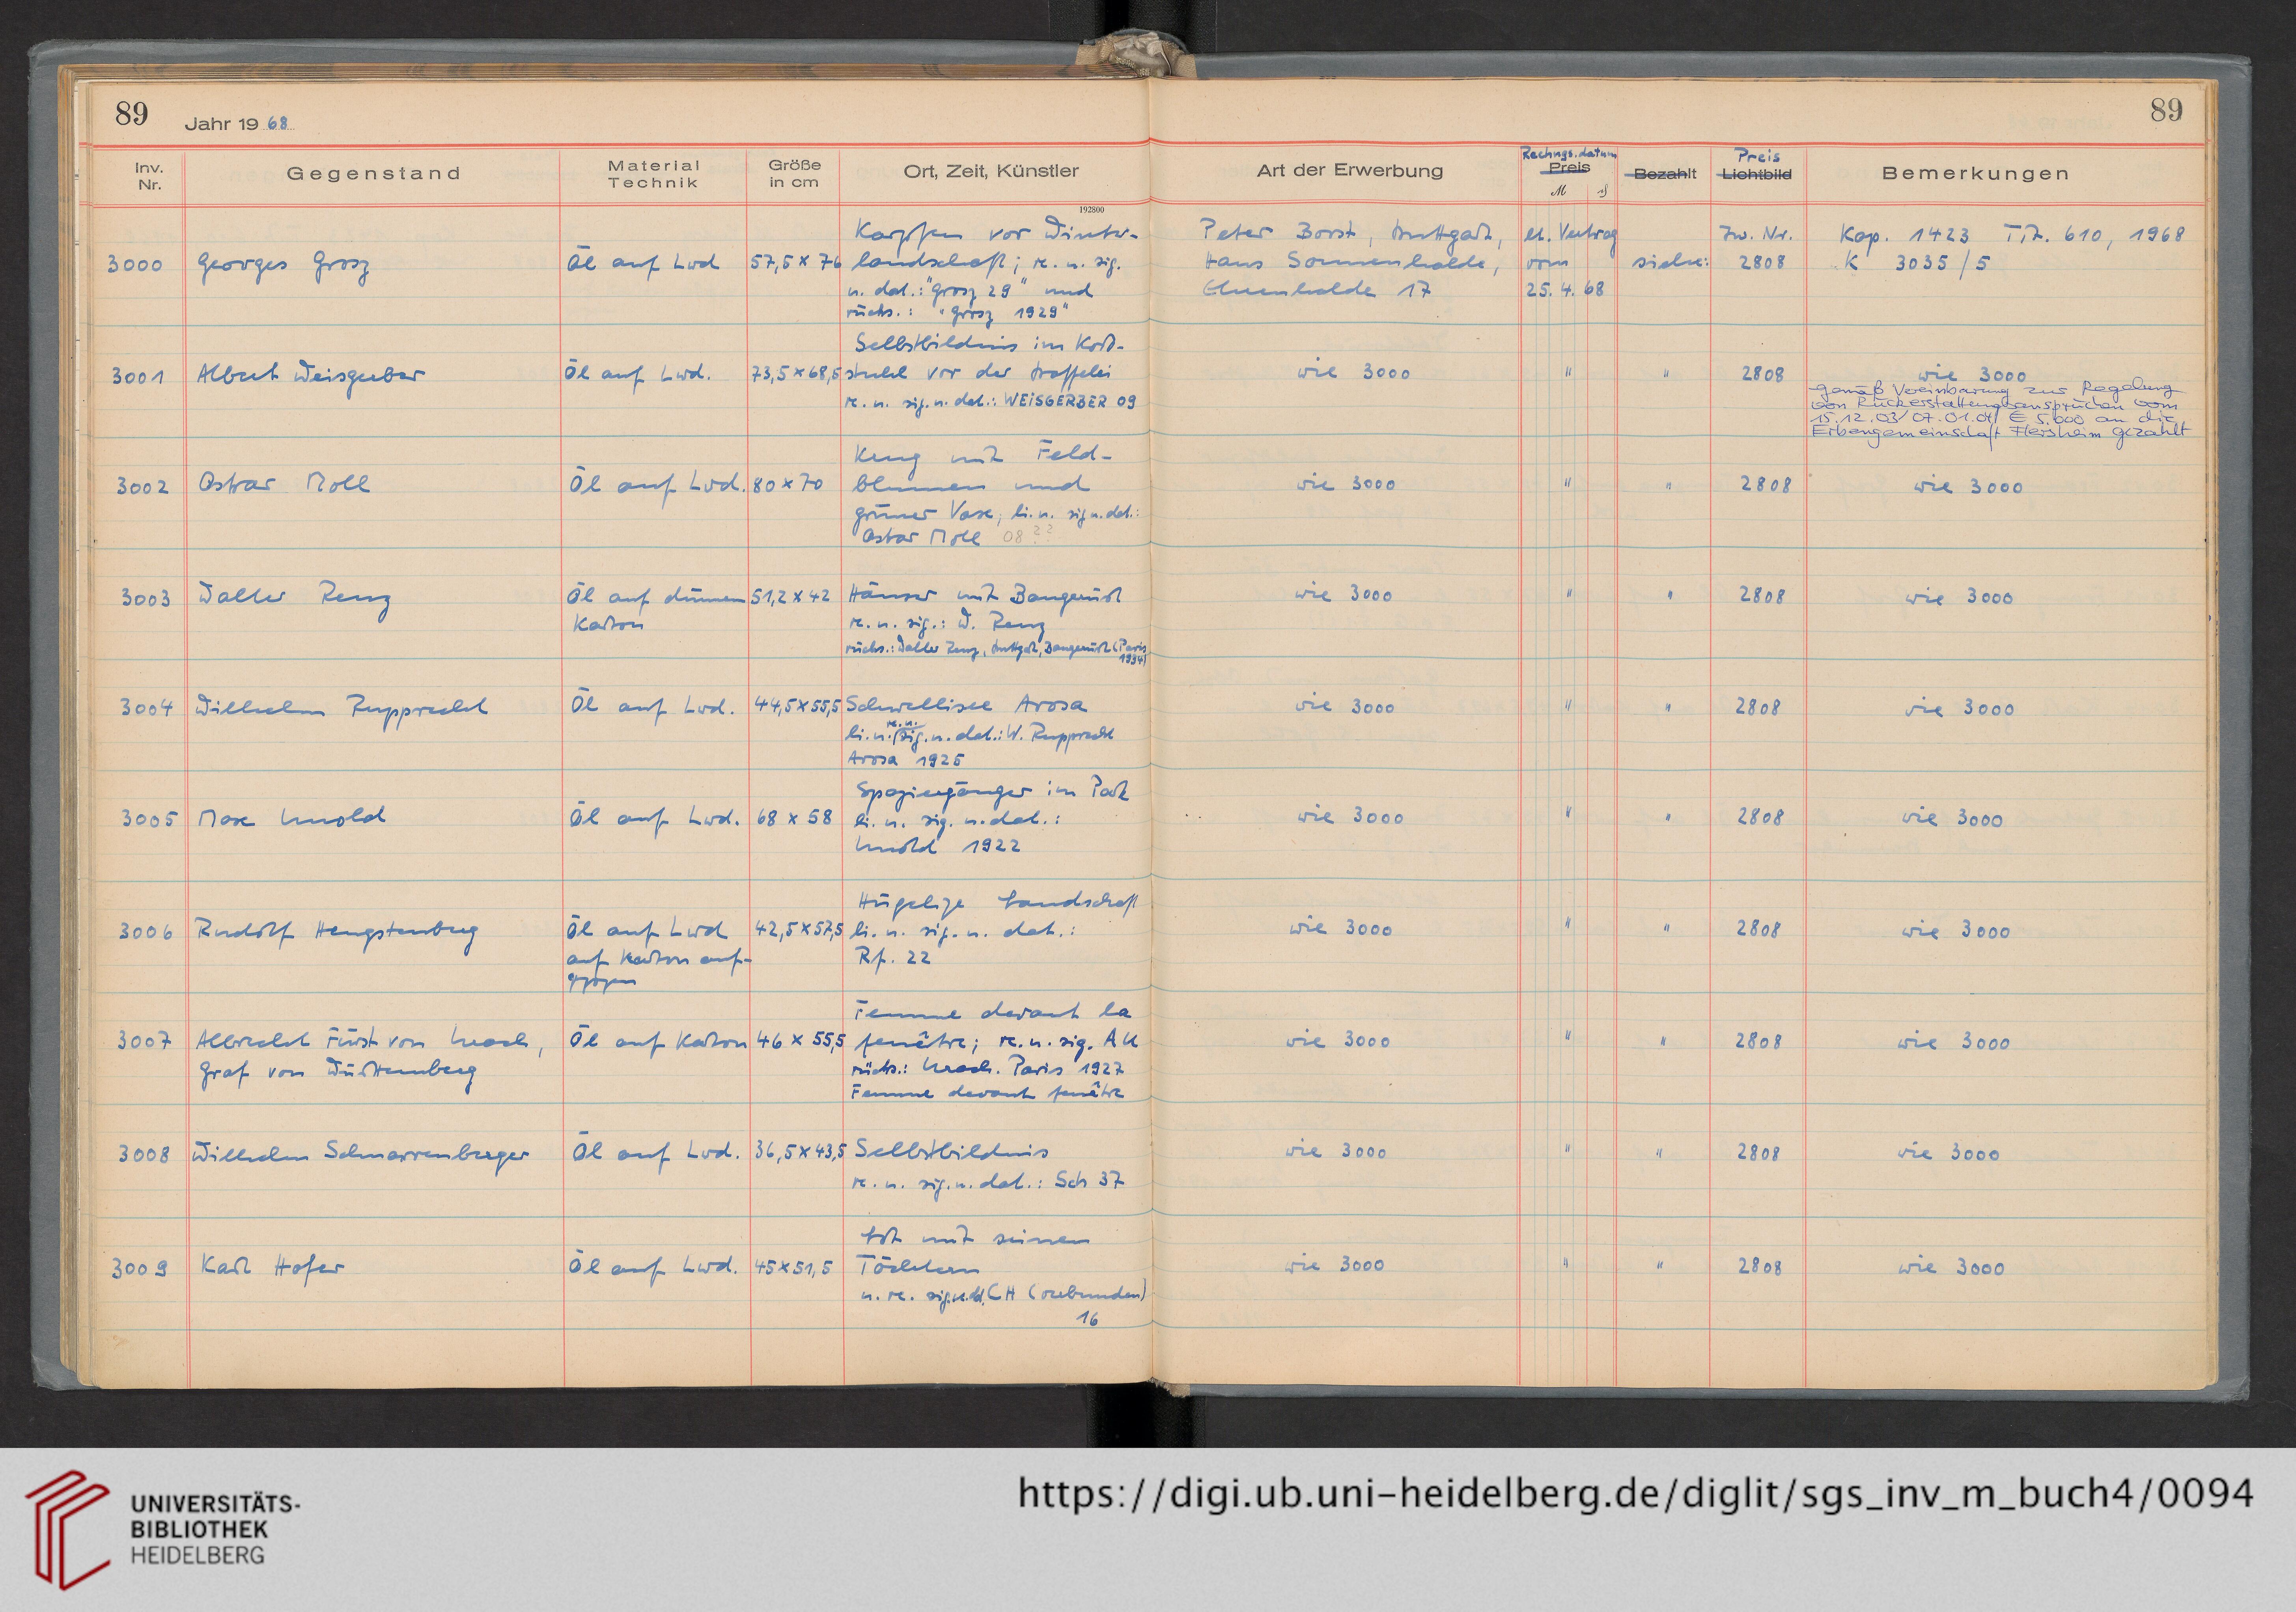 89
Jahr 19 68
89
Inv. Nr.
Gegenstand
Material Technik
Größe in cm
Ort, Zeit, Künstler
Art der Erwerbung
Rechngs.datum
Preis
M
Bezahlt
Preis
Lichtbild
Bemerkungen
192800
3000
Georges Grosz
Öl auf Lwd
57,5 x 76
Karpfen vor Winter-
landschaft; re. u. sig.
u. dat.: "Grosz 29" und
rücks.: "Grosz 1929"
Peter Borst, Stuttgart,
Haus Sonnenhalde,
17
lt. Vertrag
vom
25. 4. 68
siehe:
Zw. Nr.
2808
Kap. 1423 Tit. 610, 1968
K 3035/5
3001
Albert Weisgerber
Öl auf Lwd.
73,5 x 68,5
Selbstbildnis im Korb-
stuhl vor der Staffelei
re. u. sig. u. dat.: WEISGERBER 09
wie 3000
"
"
2808
wie 3000
Gemäß Vereinbarung zur Regelung
von Rückerstattungsansprüchen vom
15.12.03/07.01.04 € 5.000 an die
Erbengemeinschaft Flersheim gezahlt
3002
Oskar Moll
Öl auf Lwd.
80 x 70
Krug mit Feld-
blumen und
grüner Vase; li. u. sig u. dat.:
Oskar Moll 08 ??
wie 3000
"
"
2808
wie 3000
3003
Walter Renz
Öl auf dünnem
Karton
51,2 x 42
Häuser mit Baugerüst
re. u. sig.: W. Renz
rücks.: Walter Renz, Stuttgart, Baugerüst (Paris
1934)
wie 3000
"
"
2808
wie 3000
3004
Wilhelm Rupprecht
Öl auf Lwd.
44,5 x 55,5
Schwellisee Arosa
re. u.
li. u. sig. u. dat.: W. Rupprecht
Arosa 1925
wie 3000
"
"
2808
wie 3000
3005
Max Unold
Öl auf Lwd.
68 x 58
Spaziergänger im Park
li. u. sig. u. dat.:
Unold 1922
wie 3000
"
"
2808
wie 3000
3006
Rudolf Hengstenberg
Öl auf Lwd
auf Karton auf-
gezogen
42,5 x 57,5
Hügelige Landschaft
li. u. sig. u. dat.:
Rf. 22
wie 3000
"
"
2808
wie 3000
3007
Albrecht Fürst von Urach,
Graf von Württemberg
Öl auf Karton
46 x 55,5
Femme devant la
fenêtre; re. u. sig. AU
rücks.: Urach. Paris 1927
Femme devant fenêtre
wie 3000
"
"
2808
wie 3000
3008
Wilhelm Schnarrenberger
Öl auf Lwd.
36,5 x 43,5
Selbstbildnis
re. u. sig. u. dat.: Sch 37
wie 3000
"
"
2808
wie 3000
3009
Karl Hofer
Öl auf Lwd.
45 x 51,5
Lot mit seinen
Töchtern
u. re. sig. u. dat. CH (verbunden)
16
wie 3000
"
"
2808
wie 3000
UNIVERSITÄTS-
BIBLIOTHEK
HEIDELBERG
https://digi.ub.uni-heidelberg.de/diglit/sgs_inv_m_buch4/0094